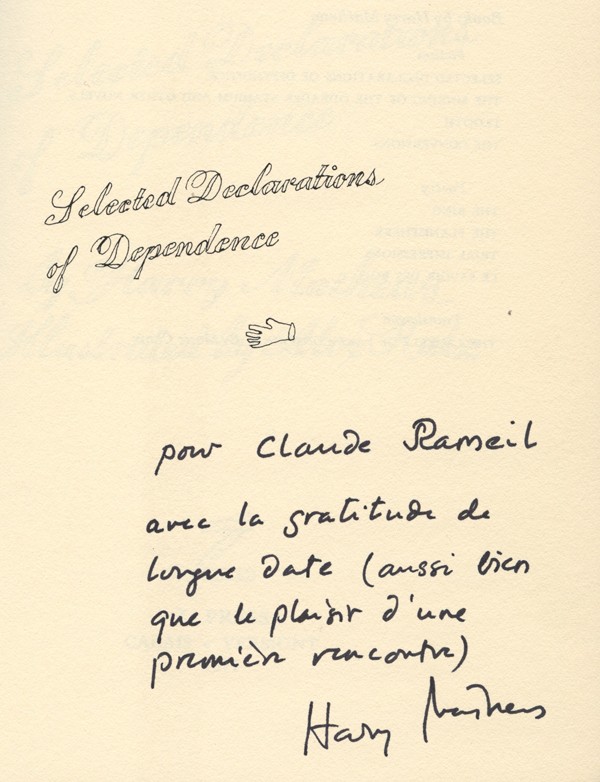 Selected Declarations
of Dependence
pour Claude Rameil
avec la gratitude de
longue date (aussi bien
que le plaisir d'une
première rencontre)
Harry Mathews